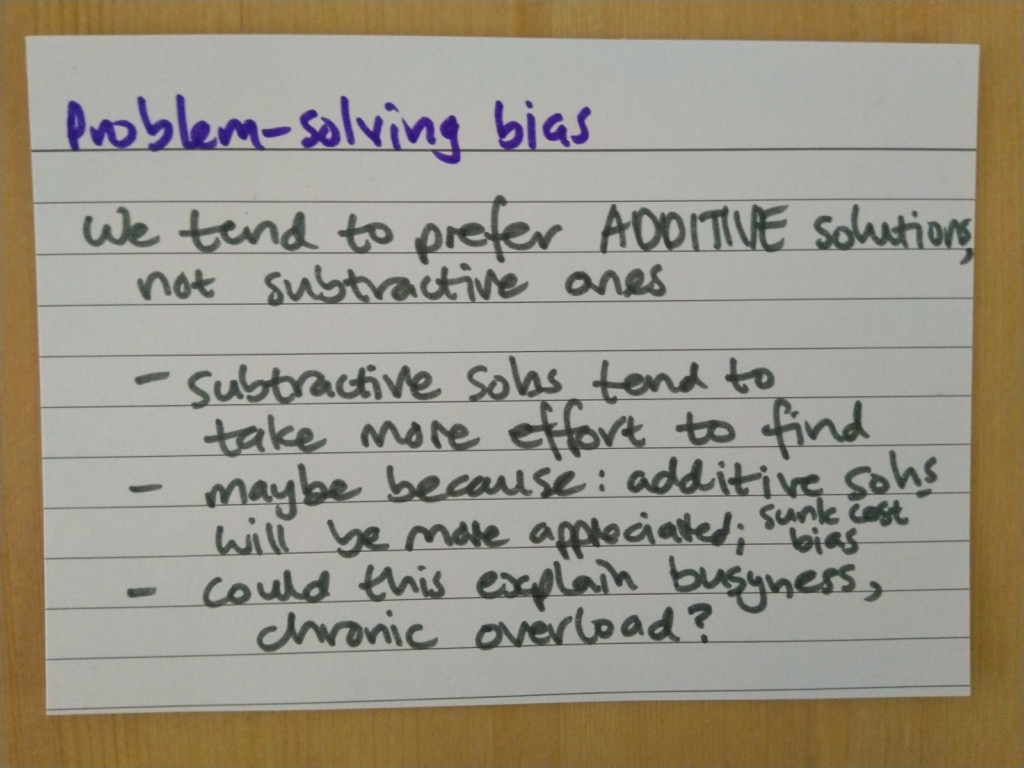 Problem-solving bias
We tend to prefer ADDITIVE solutions,
not subtractive ones
- subtractive solns tend to
take more effort to find
- maybe because: additive solns
will be more appreciated; sunk cost
bias
- could this explain busyness,
chronic overload?